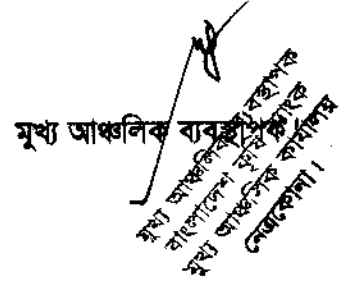 মুখ্য আঞ্চলিক ব্যবস্থাপক।
মুখ্য আঞ্চলিক ব্যবস্থাপক
বাংলাদেশ কৃষি ব্যাংক
মুখ্য আঞ্চলিক কার্যালয়
নেত্রকোনা।